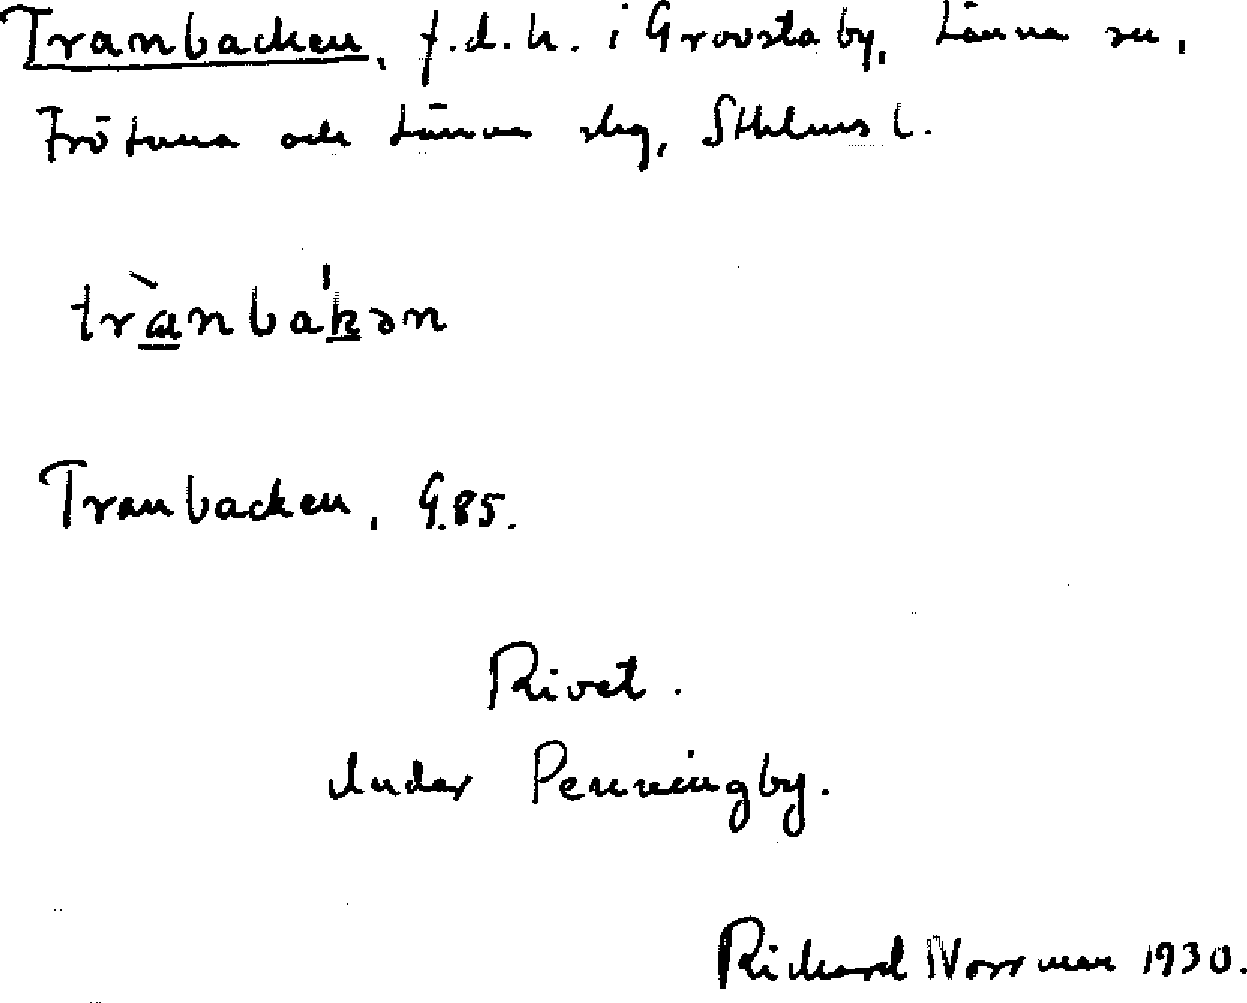 Tranbacken, f.d.h. i Grovsta by, Länna sn,
Frötuna och Länna skg, Sthlms l.
trànba'kən
Tranbacken, G.85.
Rivet.
Under Penningby.
Richard Norrman 1930.